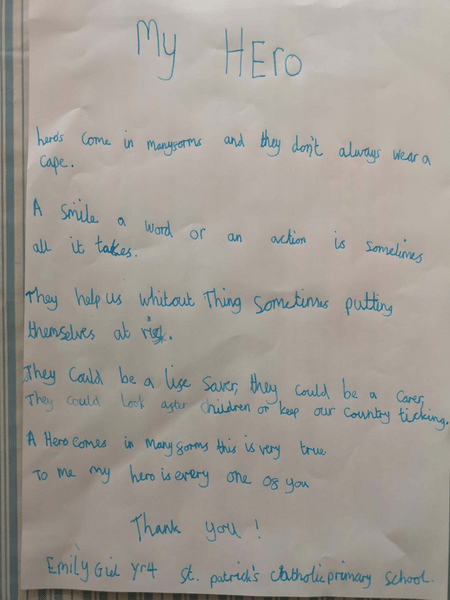 My HERO
heros come in manyforms and they don't always wear a
cape.
A smile a word or an action is sometimes
all it takes.
They help us whitout Thing sometimes putting
themselves at risk.
They could be a life saver, they could be a carer,
They could look after children or keep our country ticking.
A Hero comes in manyforms this is very true
To me my hero is every one of you
Thank you!
Emily Giel yr4 st. patrick's Catholic primary school.